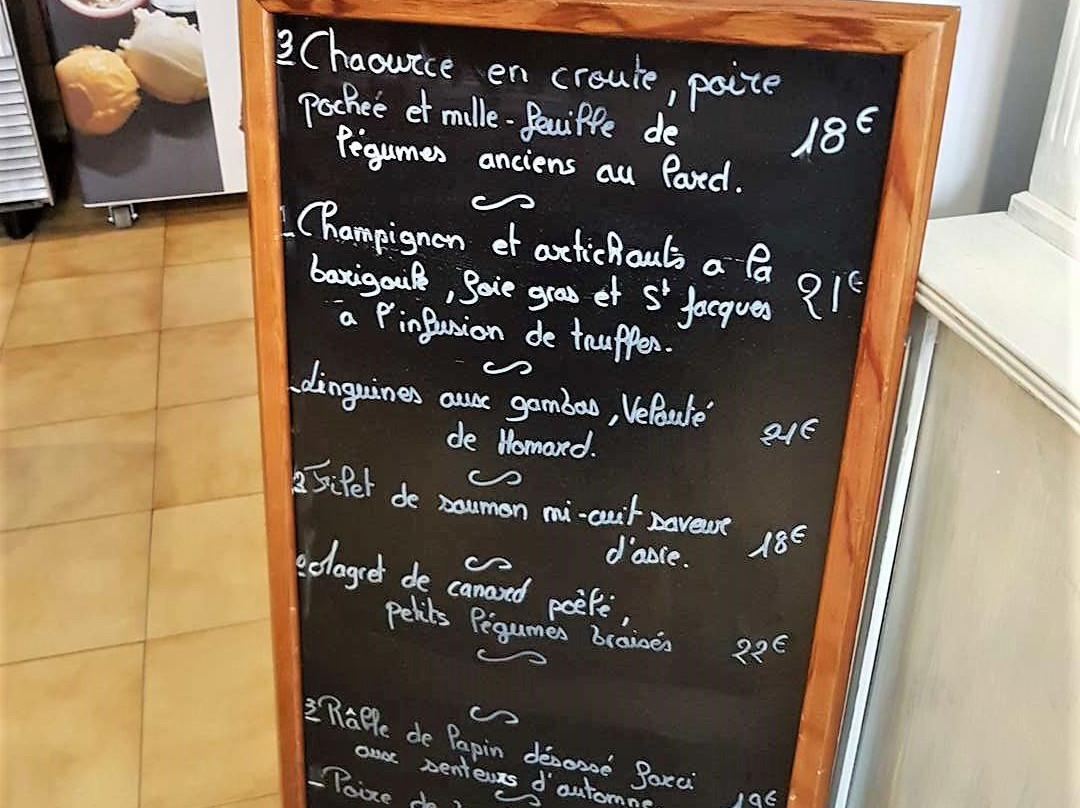 3 Chaource en croute, poire
pocheé et mille-feuille de
légumes anciens au lard. 18€
1 Champignon et artichauts a la
barigoule, foie gras et St Jacques 21€
a l'infusion de truffes.
-Linguines aux gambas, Velouté
de Homard. 21€
2 Filet de saumon mi-cuit saveur
d'asie. 18€
Magret de canard poêlé,
petits légumes braisés 22€
3 Râble de lapin désossé farci
aux senteurs d'automne. 19€
- Poire de